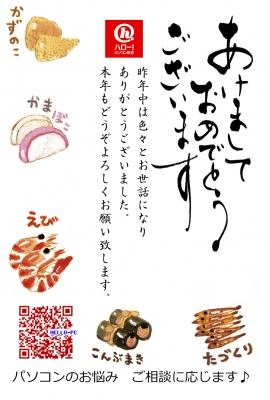 あけまして
おめでとう
ございます
ハロー!
パソコン教室
昨年中は色々とお世話になり
ありがとうございました。
本年もどうぞよろしくお願い致します。
かずのこ
かまぼこ
えび
HELLO-PC
こんぶまき
たづくり
パソコンのお悩み　ご相談に応じます♪